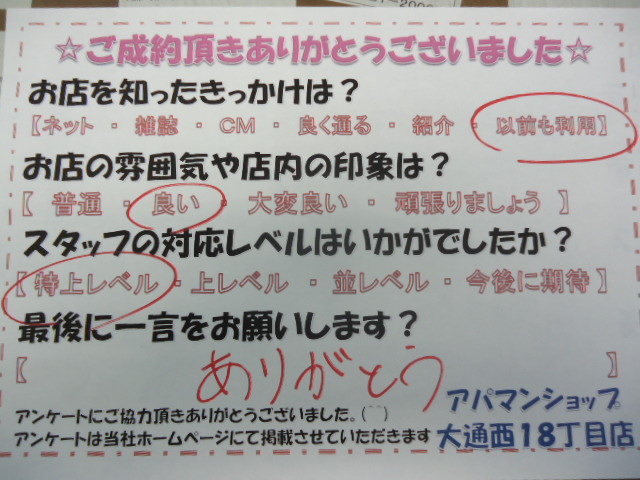 ☆ご成約頂きありがとうございました☆
お店を知ったきっかけは？
【ネット ・ 雑誌 ・ CM ・ 良く通る ・ 紹介 ・ 以前も利用】
お店の雰囲気や店内の印象は？
【 普通 ・ 良い ・ 大変良い ・ 頑張りましょう 】
スタッフの対応レベルはいかがでしたか？
【特上レベル ・上レベル ・ 並レベル ・ 今後に期待】
最後に一言をお願いします？
【 ありがとう 】
アンケートにご協力頂きありがとうございました。(⌒⌒)
アンケートは当社ホームページにて掲載させていただきます
アパマンショップ
大通西18丁目店